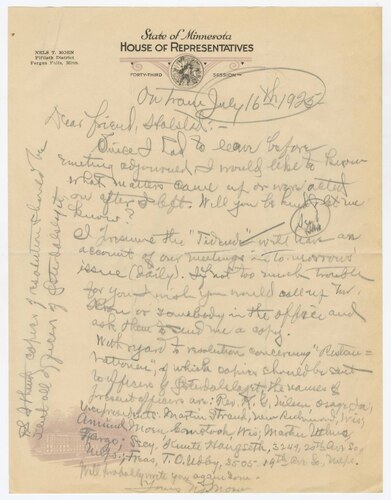 State of Minnesota
HOUSE OF REPRESENTATIVES
NELS T. MOEN
Fiftieth District
Fergus Falls, Minn.
FORTY-THIRD SESSION
On train July 16th 1925
Dear Friend, Holstad:-
Since I had to leave before
meeting adjourned I would like to know
what matters came up or were acted
on after I left. Will you be kind let me
know?
I presume the "Tidende" will have an
account of our meetings in to-morrows
issue (daily). If not too much trouble
for you I wish you would call up Mr.
or somebody in the office and
ask them to send me a copy.
With regard to resolution concerning
of which copies should be sent
to officers of the names of
present officers are: Pres. A. G. Nilsen Osage, Ia.
Vice pres. Martin Strand, New Richmond, Wis.
Moen Comstock, Wis, Martin
Fargo; Secy, Knute Haugseth 3249 20th Ave So,
Mpls; Treas, T. O. Udby, 3505 19th Ave So, Mpls.
Will probably write you again soon.
Yours N. T. Moen
P.S. I think copies of resolution should be
sent all officers of